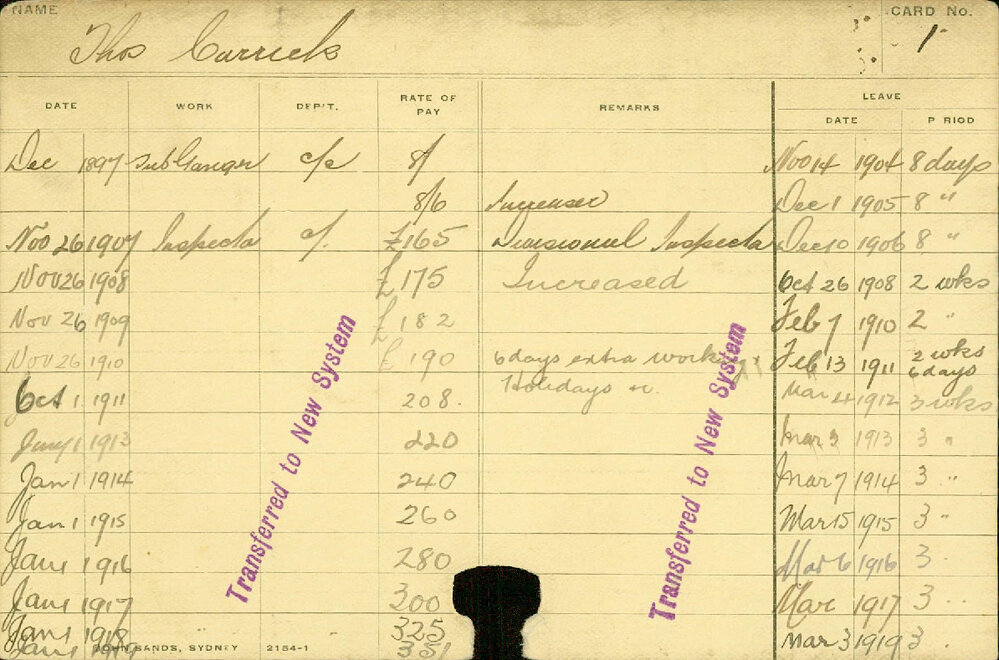 NAME
CARD No.
Thos Carrick
1
DATE WORK DEP'T. RATE OF PAY REMARKS LEAVE
DATE P RIOD
Dec 1897 Sub Ganger c/e 8/ Nov 14 1904 8 days
8/6 Increased Dec 1 1905 8 "
Nov 26 1907 Inspector c/. £165 Divisional Inspector Dec 10 1906 8 "
Nov 26 1908 £175 Increased Oct 26 1908 2 wks
Nov 26 1909 £182 Feb 7 1910 2 "
Nov 26 1910 £190 6 days extra work Feb 13 1911 2 wks 6 days
Oct 1 1911 208. Holidays Mar 4 1912 3 wks
Jany 1 1913 220 Mar 3 1913 3 "
Jan 1 1914 240 Mar 7 1914 3 "
Jan 1 1915 260 Mar 15 1915 3 "
Jan 1 1916 280 Mar 6 1916 3
Jan 1 1917 300 Mar 1917 3 "
Jan 1 1918 325 Mar 3 1919 3
Jan 1 1919 351
JOHN SANDS, SYDNEY 2154-1
Transferred to New System
Transferred to New System